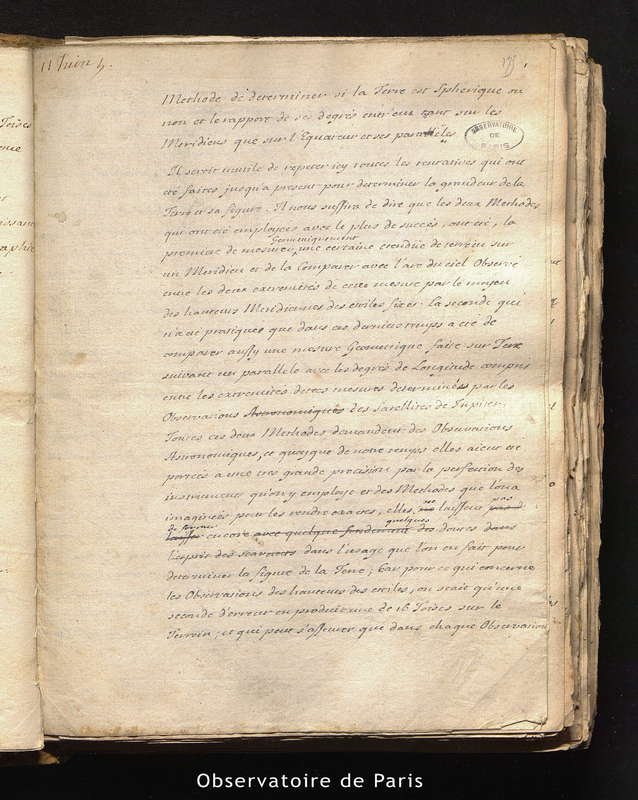 11 Juin
175
Methode de determiner si la Terre est Spherique ou
non et le rapport de ses degrés entr'eux tant sur les
Meridiens que sur l'Equateur et ses paralleles
OBSERVATOIRE
DE
PARIS
Il seroit inutile de repeter icy toutes les tentatives qui ont
eté faites jusqu'a present pour determiner la grandeur de la
Terre et sa figure. Il nous suffira de dire que les deux Methodes
qui ont eté employées avec le plus de succès, ont eté, la
premiere de mesurer Geometriquement une certaine etendüe de terrein sur
un Meridien et de la Comparer avec l'arc du ciel Observé
entre les deux extremités de cette mesure par le moyen
des hauteurs Meridiennes des etoiles fixes. la seconde qui
n'a eté pratiquée que dans ces derniers temps a eté de
comparer aussy une mesure Geometrique faite sur Terre
suivant un parallele avec les degrés de Longitude compris
entre les extremités de ces mesures determinées par les
Observations Astronomiques des Satellites de Jupiter.
Toutes ces deux Methodes demandent des Observations
Astronomiques, et quoyque de notre temps elles aient eté
portées a une tres grande precision par la perfection des
instrumens qu'on y employe et des Methodes que l'on a
imaginées pour les rendre exactes, elles ne laissent pas
de former
laisser encore avec quelque fondement quelques des doutes dans
l'esprit des scavants dans l'usage que l'on en fait pour
determiner la figure de la Terre; Car pour ce qui concerne
les Observations des hauteurs des etoiles, on scait qu'une
seconde d'erreur en produit une de 16 Toises sur le
Terrein; et qui peut s'asseurer que dans chaque Observation
Toises
Observatoire de Paris